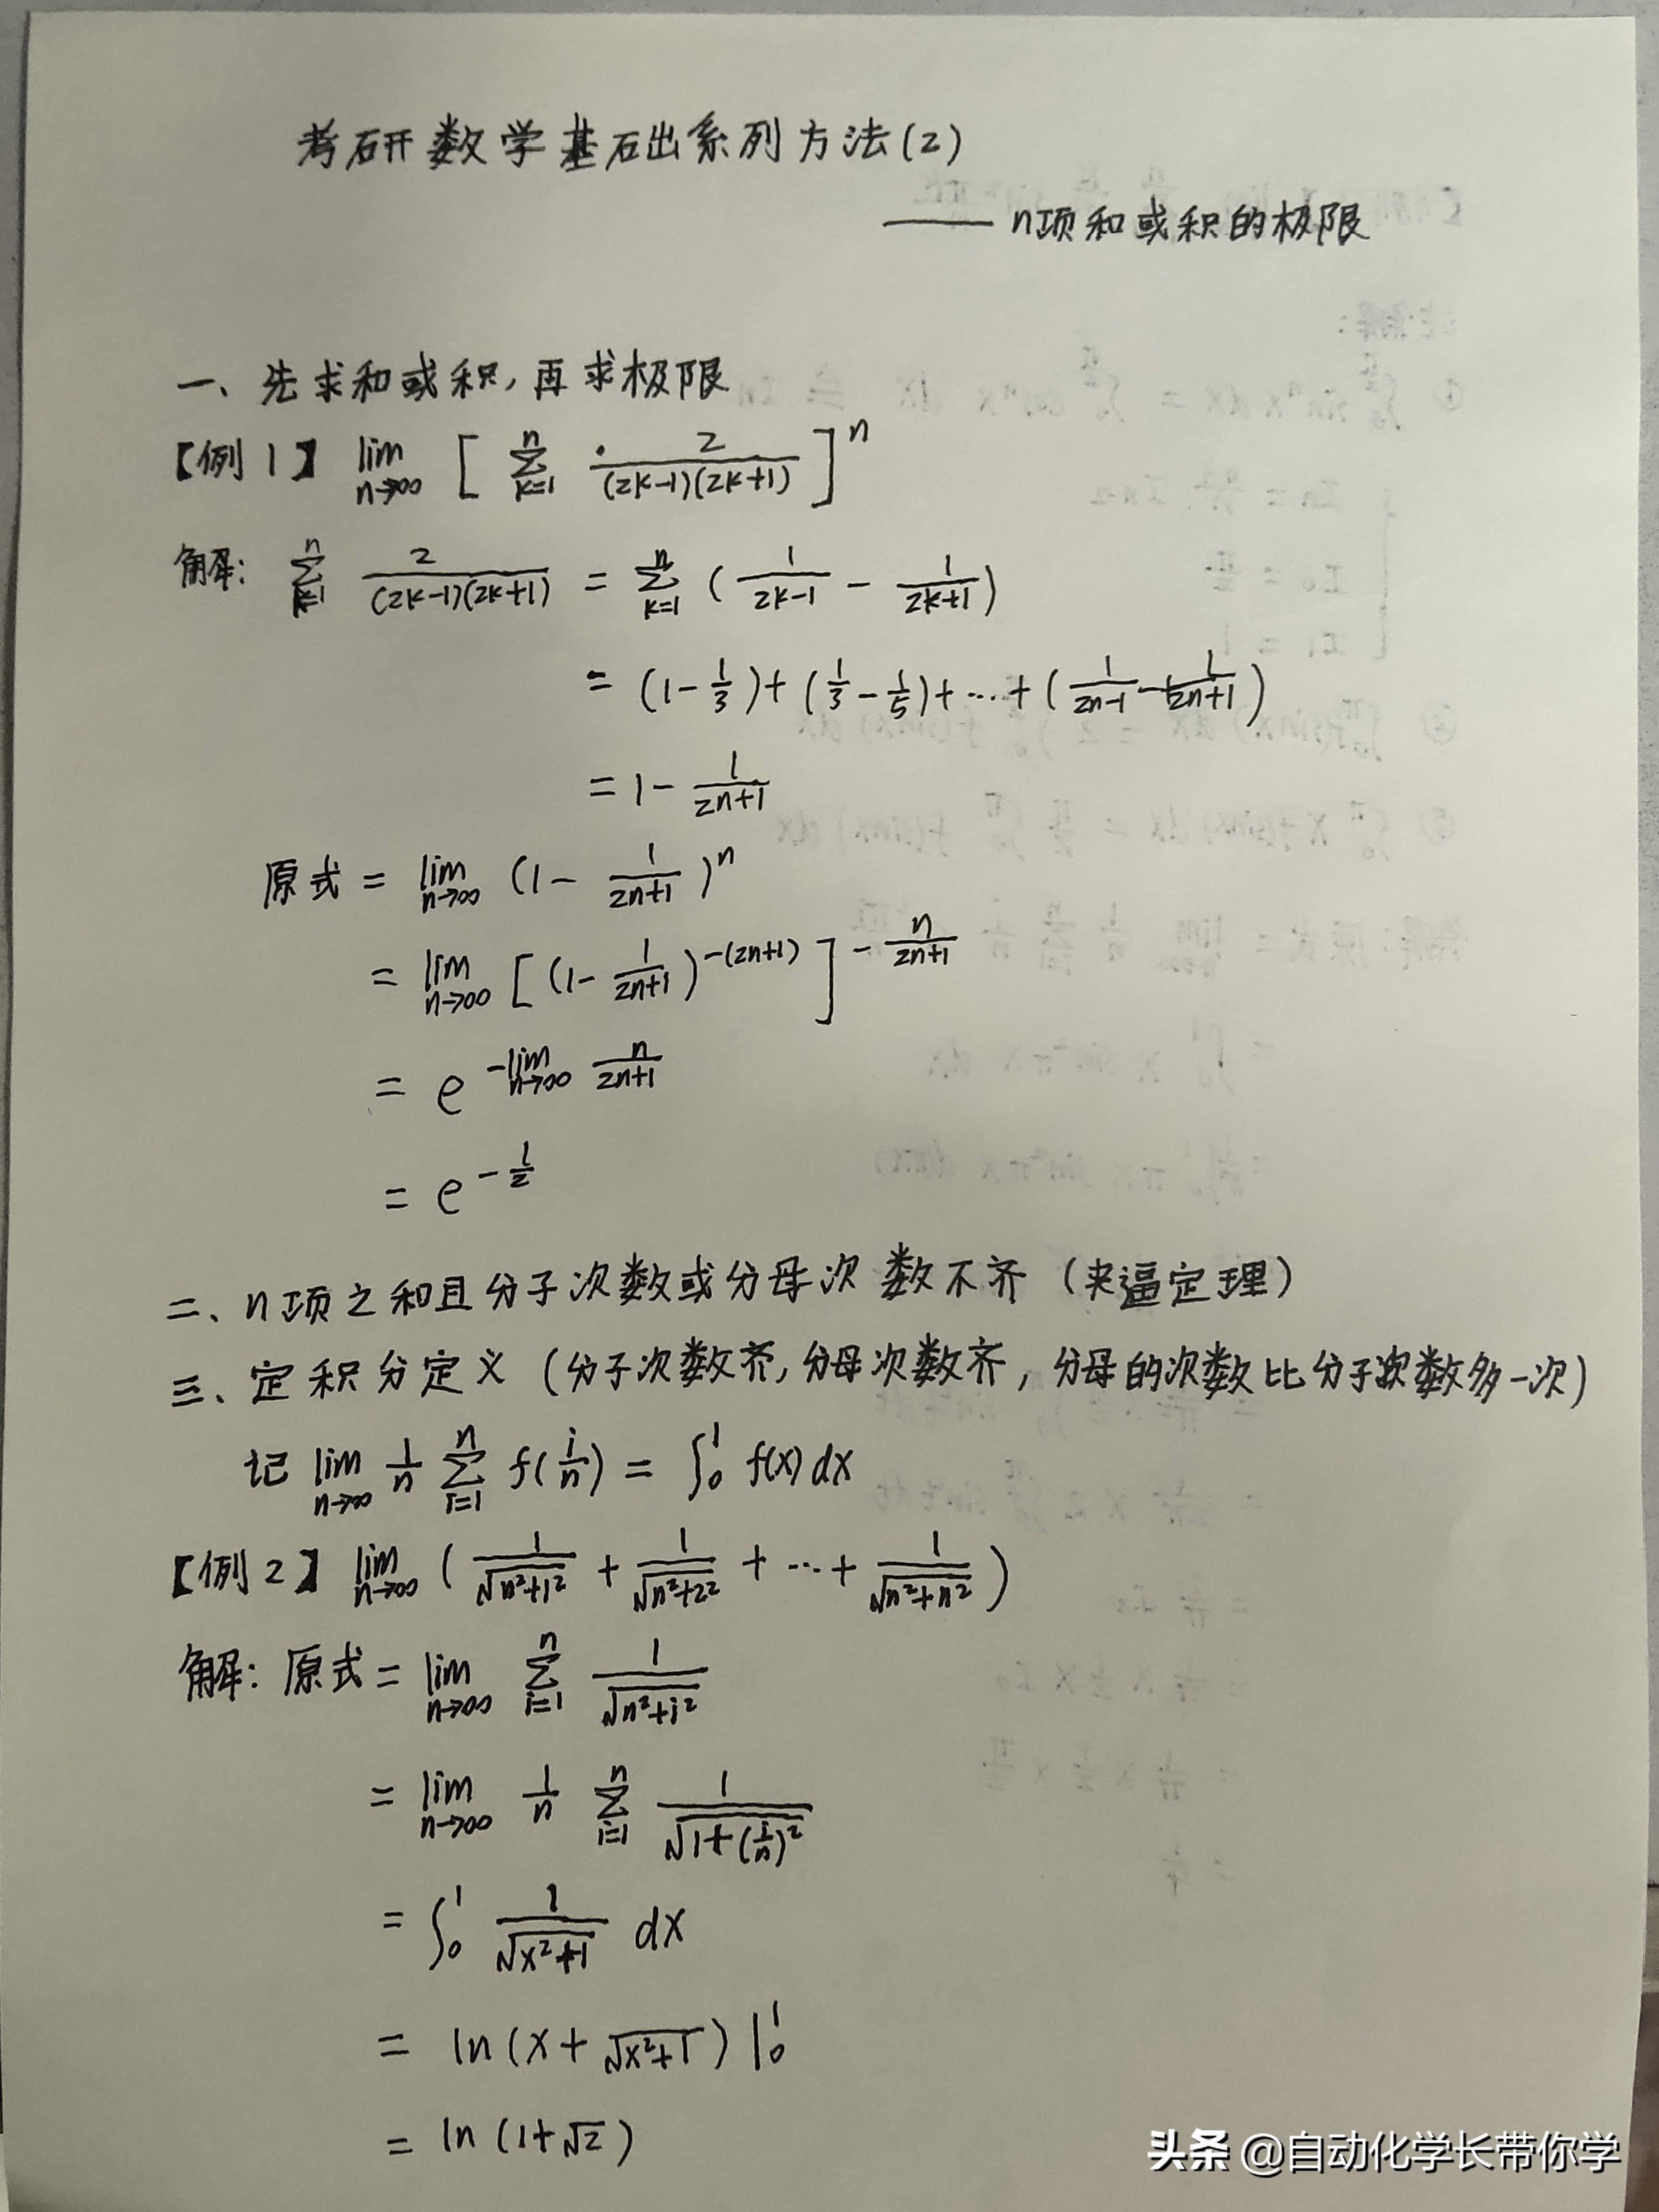 考研数学基础系列方法(2)
—— n项和或积的极限
一、先求和或积,再求极限
【例1】 lim_{n→∞} [ ∑_{k=1}^{n} 2/((2k-1)(2k+1)) ]^n
解: ∑_{k=1}^{n} 2/((2k-1)(2k+1)) = ∑_{k=1}^{n} ( 1/(2k-1) - 1/(2k+1) )
= (1-1/3)+(1/3-1/5)+…+( 1/(2n-1) - 1/(2n+1) )
= 1- 1/(2n+1)
原式 = lim_{n→∞} (1- 1/(2n+1))^n
= lim_{n→∞} [ (1- 1/(2n+1))^{-(2n+1)} ]^{- n/(2n+1)}
= e^{-lim_{n→∞} n/(2n+1)}
= e^{-1/2}
二、n项之和且分子次数或分母次数不齐(夹逼定理)
三、定积分定义(分子次数齐,分母次数齐,分母的次数比分子次数多一次)
记 lim_{n→∞} 1/n ∑_{i=1}^{n} f(i/n) = ∫_0^1 f(x)dx
【例2】 lim_{n→∞} ( 1/√(n²+1²) + 1/√(n²+2²) + … + 1/√(n²+n²) )
解: 原式= lim_{n→∞} ∑_{i=1}^{n} 1/√(n²+i²)
= lim_{n→∞} 1/n ∑_{i=1}^{n} 1/√(1+(i/n)²)
= ∫_0^1 1/√(x²+1) dx
= ln(x+√(x²+1)) |_0^1
= ln(1+√2)
头条 @自动化学长带你学